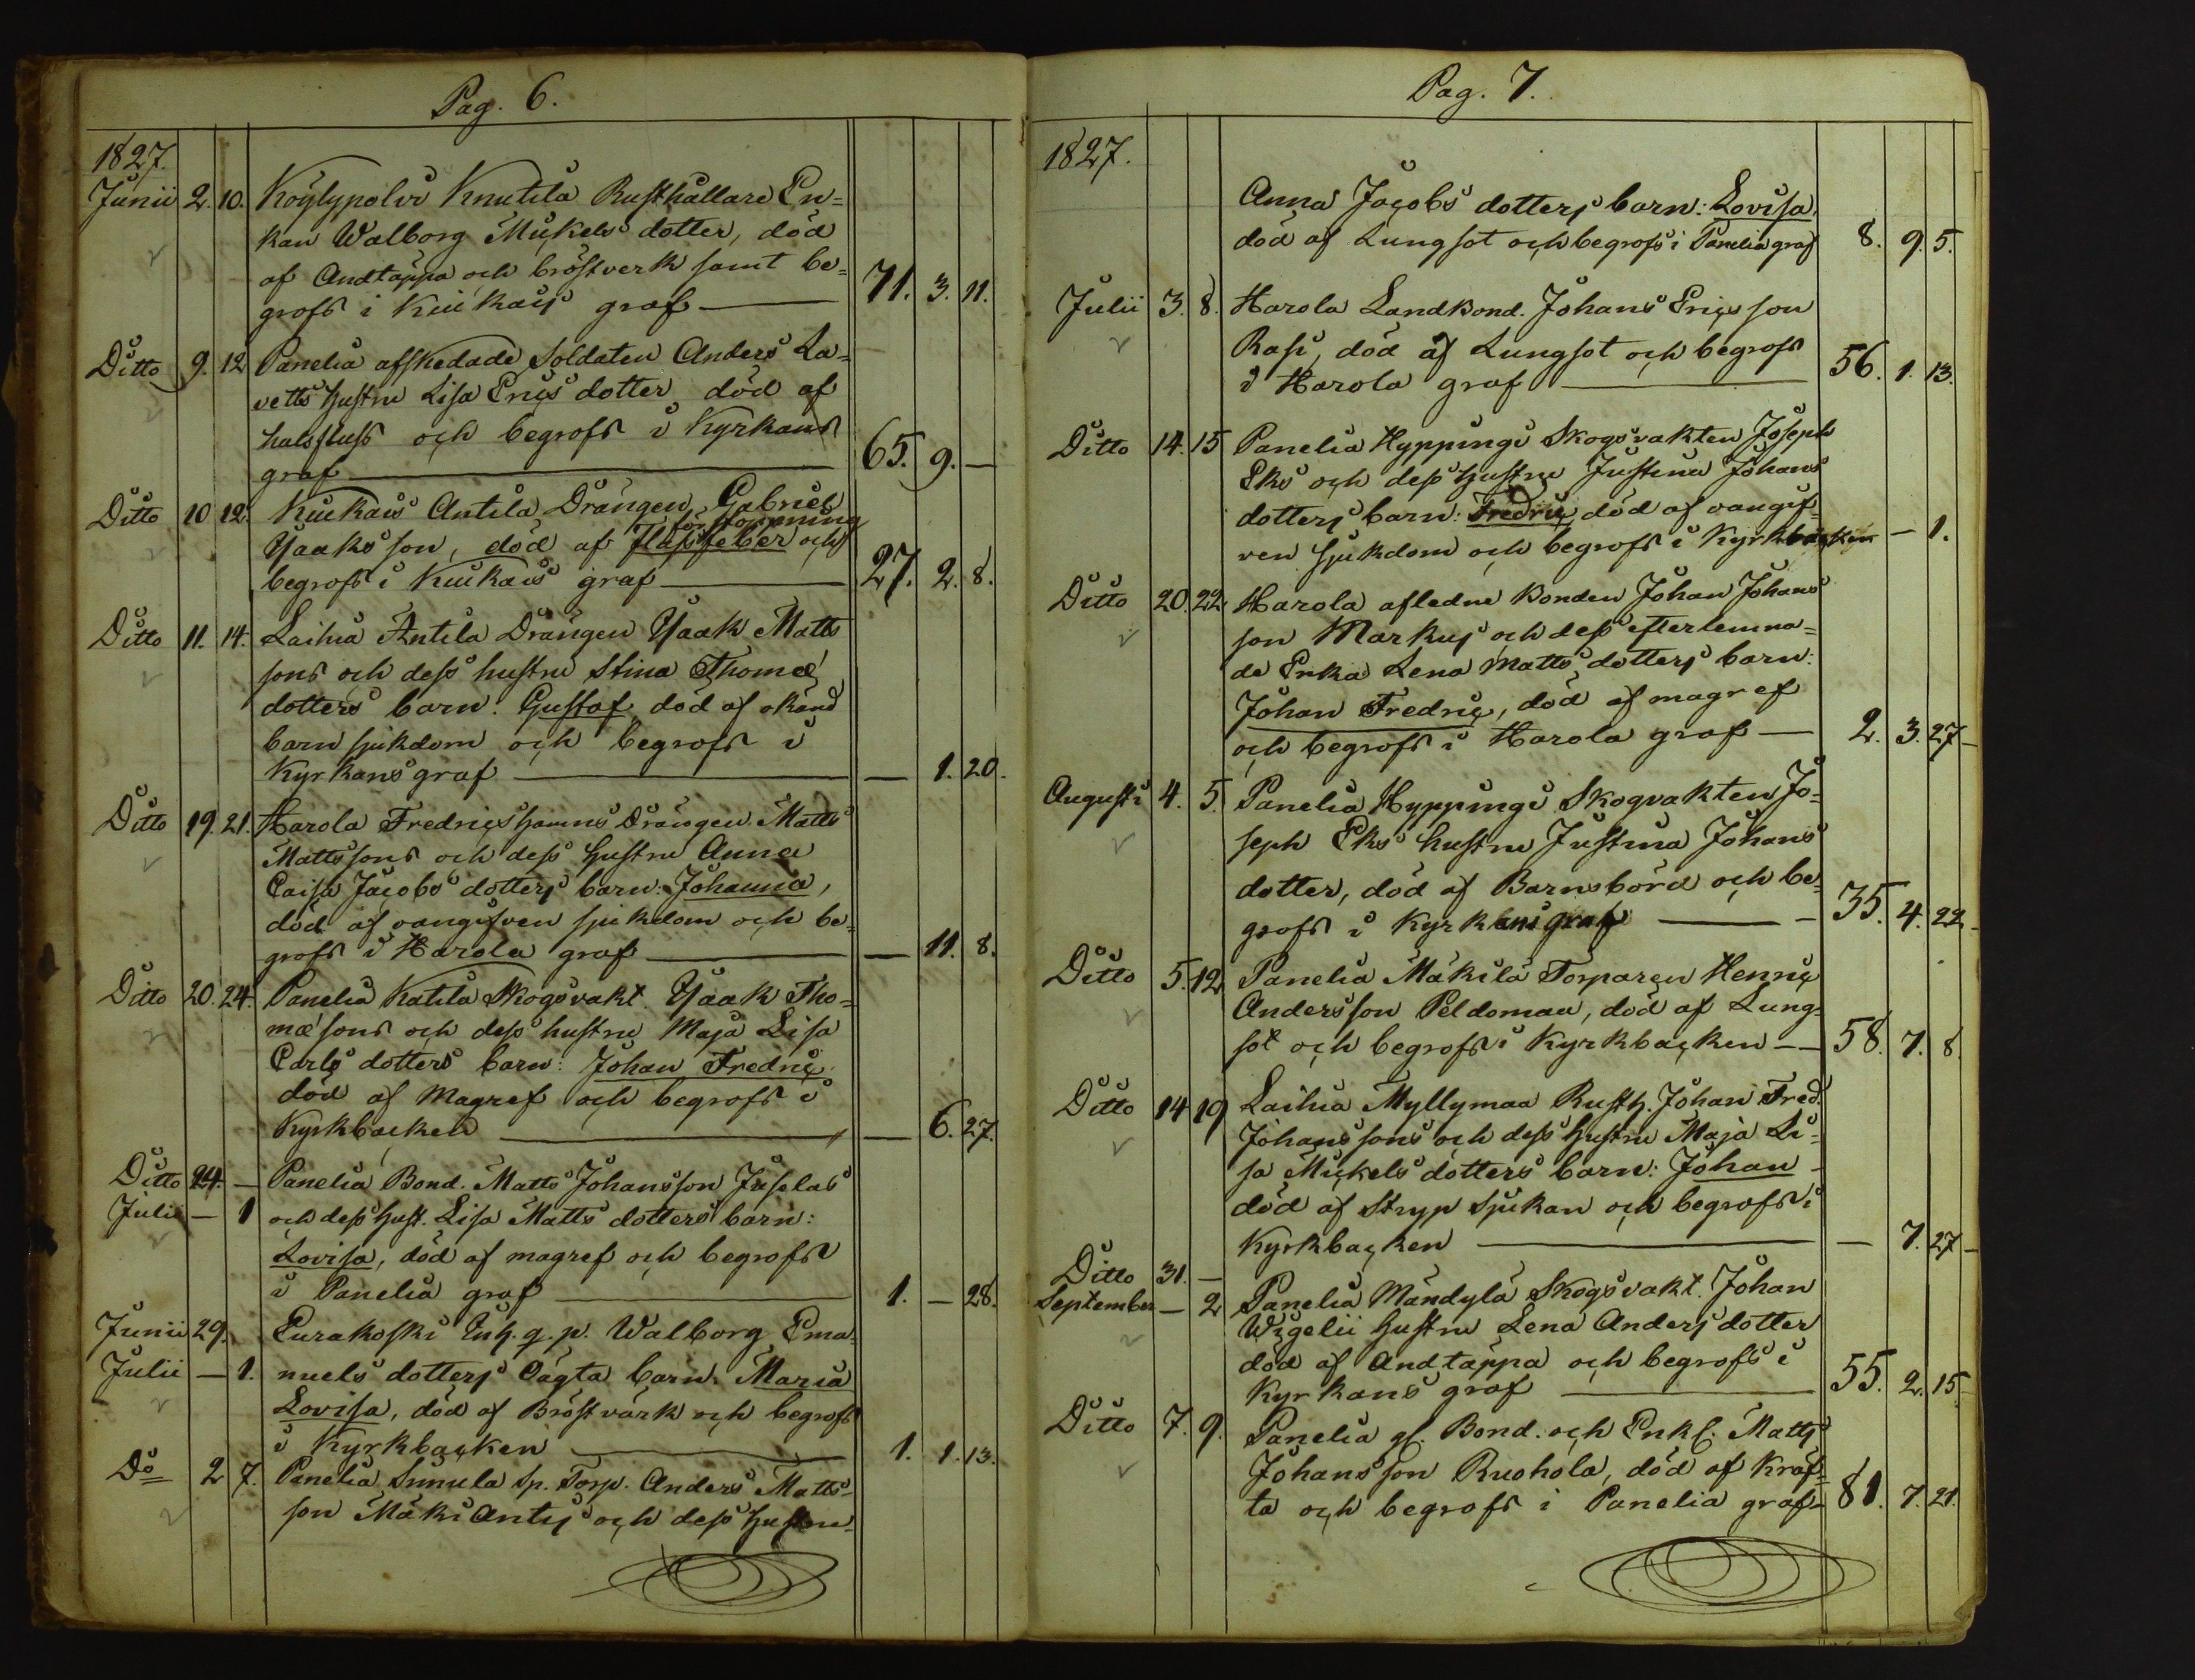 Pag. 6.
1827.
Junii 2. 10.Köylypolvi Knutila Rusthållare En=
kan Walborg Mickels dotter, död
af Andtäppa och bröstverk samt be=
grofs i Kiukais graf — 71. 3. 11.
Ditto 9. 12 Panelia afskedade Soldaten Anders La=
vetts hustru Lisa Erics dotter död af
halsfluss och begrofs i Kyrkans
graf — 65. 9. —
Ditto 10 12. Kiukais Antila Drängen Gabriel
förstoppning
Isaaks son, död af flussfeber och
begrofs i Kiukais graf — 27. 2. 8.
Ditto 11. 14. Laihia Antila Drängen Isaak Matts
sons och dess hustru Stina Thomæ
dotters barn: Gustaf död af okänd
barnsjukdom och begrofs i
Kyrkans graf — — 1. 20.
Ditto 19. 21. Harola Fredricshamns Drängen Matts
Mattssons och dess hustru Anna
Caisa Jacobs dotters barn: Johanna,
död af oangifven sjukdom och be=
grofs i Harola graf — — 11. 8.
Ditto 20. 24. Panelia Katila Skogsvakt. Isaak Tho=
mæ sons och dess hustru Maja Lisa
Carls dotters barn: Johan Fredric
död af Magref och begrofs i
Kyrkbacken — — 6. 27.
Ditto 24. — Panelia Bond. Matts Johansson Juselas
Julii — 1 och dess hust. Lisa Matts dotters barn:
Lovisa, död af magref och begrofs
i Panelia graf — 1. — 28.
Junii 29. Eurakoski Inh. q. p. Walborg Ema=
Julii — 1. nuels dotters oägta barn: Maria
Lovisa, död af Bröstvärk och begrofs
i Kyrkbacken — 1. 1. 13.
Do 2 7. Panelia Sp. Torp. Anders Matts=
son Mäki Antis och dess hustru
Pag. 7.
1827.
Anna Jacobs dotters barn: Lovisa,
död af Lungsot och begrofs i Panelia graf 8. 9. 5.
Julii 3. 8. Harola Landbond. Johans Ericsson
Rasi, död af Lungsot och begrofs
i Harola graf — 56. 1. 13.
Ditto 14. 15 Panelia Hyppingi Skogsvakten Joseph
Eks och dess hustru Justina Johans
dotters barn: Fredric död af oangif=
ven sjukdom och begrofs i Kyrkbacken — 1.
Ditto 20. 22. Harola aflidne Bonden Johan Johans
son Markus och dess efterlemna=
de Enka Lena Matts dotters barn:
Johan Fredric, död af magref
och begrofs i Harola graf — 2. 3. 27 —
Augusti 4. 5. Panelia Hyppingi Skogvakten Jo=
seph Eks hustru Justina Johans
dotter, död af Barnsbörd och be=
grofs i Kyrkans graf — 35. 4. 22 —
Ditto 5. 12 Panelia Mäkilä Torparen Henric
Andersson Peldomaa, död af Lung=
sot och begrofs i Kyrkbacken — 58. 7. 8.
Ditto 14 19 Laihia Myllymaa Rusth. Johan Fred.
Johanssons och dess hustru Maja Li=
sa Mickels dotters barn: Johan
död af Stryp Sjukan och begrofs i
Kyrkbacken — — 7. 27 —
Ditto 31. —
September — 2 Panelia Mändylä Skogsvakt. Johan
Wigelii hustru Lena Anders dotter
död af Andtäppa och begrofs i
Kyrkans graf — 55. 2. 15
Ditto 7. 9. Panelia gl. Bond. och Enkl. Matts
Johansson Ruohola, död af Kräf=
ta och begrofs i Panelia graf — 81. 7. 21.